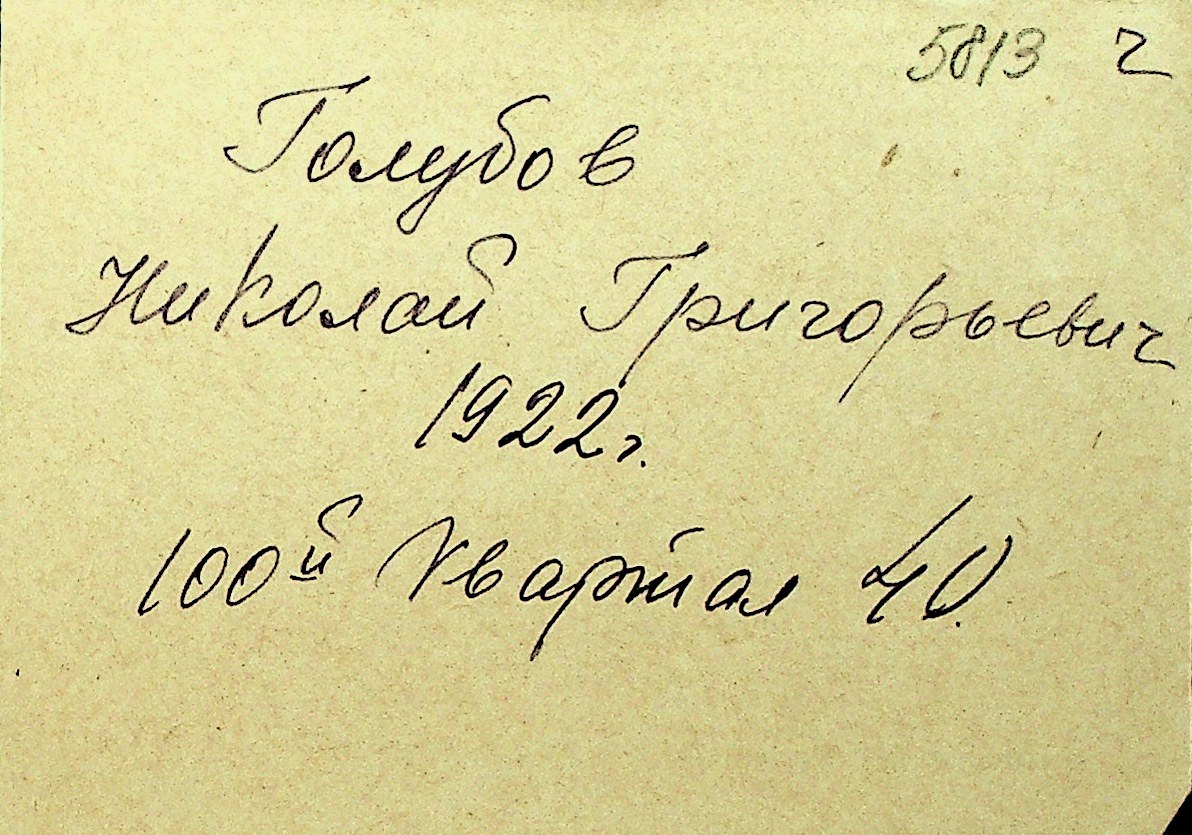 5813 ч
Голубов
Николай Григорьевич
1922г.
100й Квартал 40.